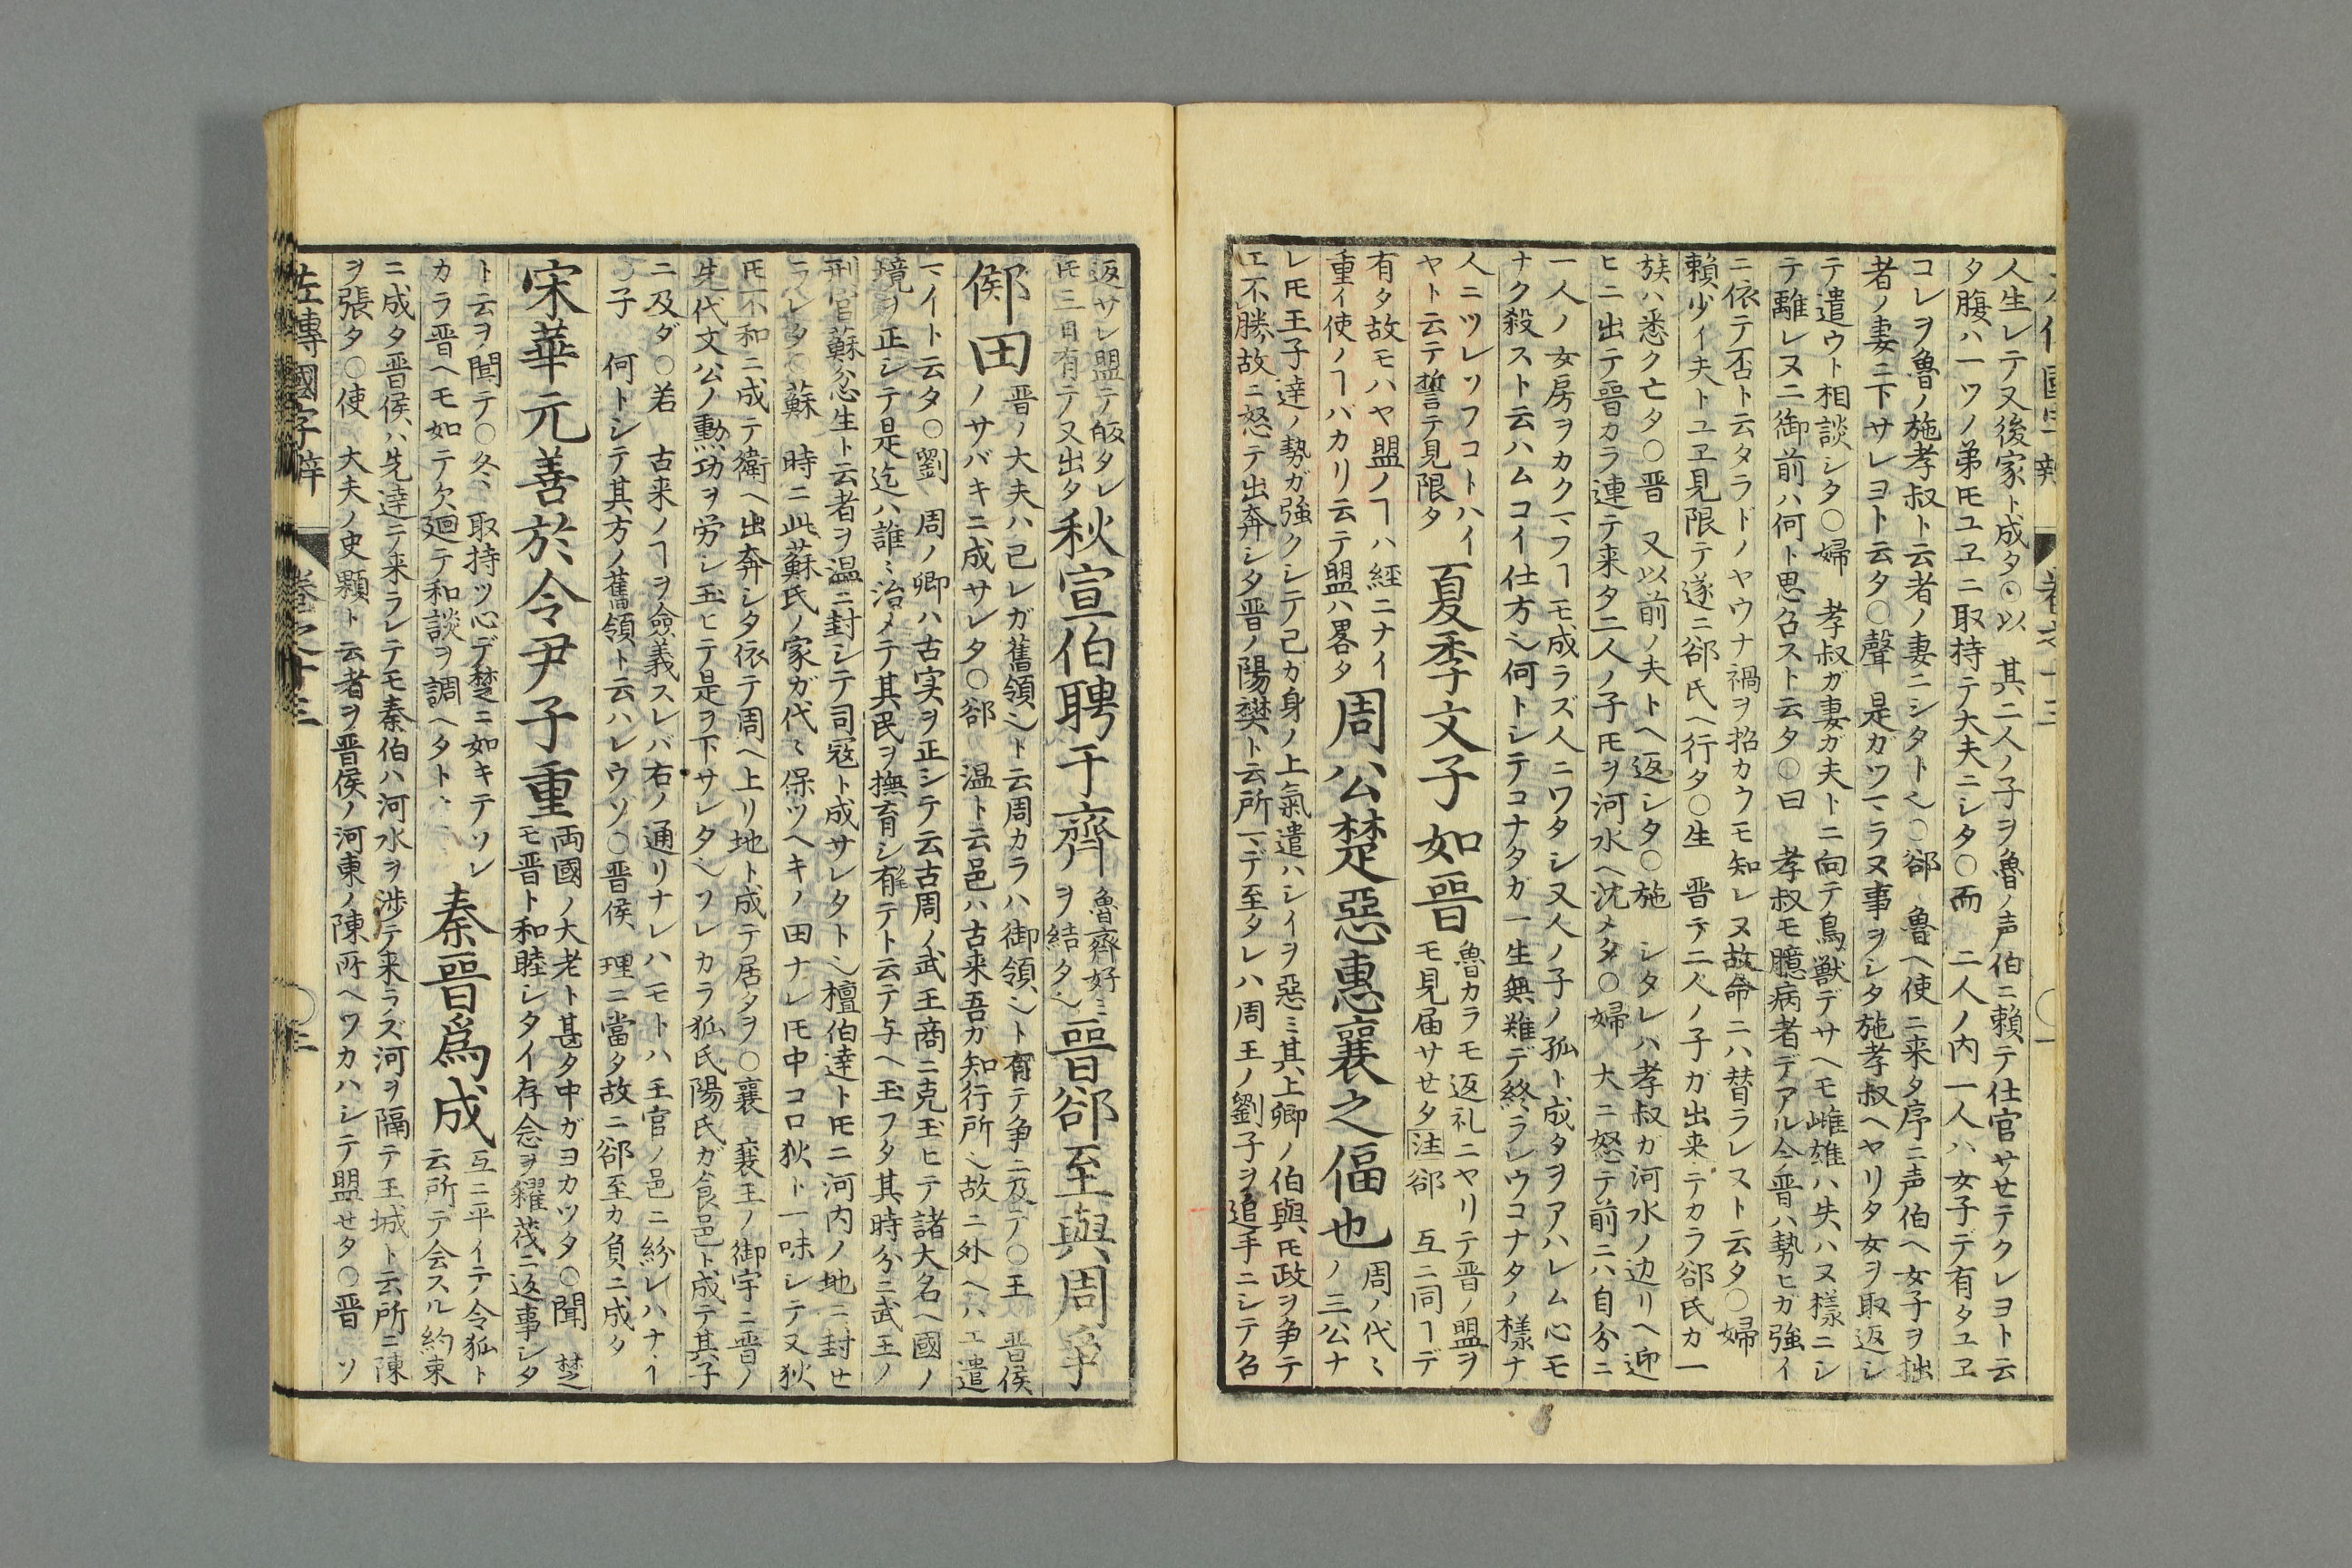 人生レテ又後家ト成タ○以　其二人ノ子ヲ魯ノ声伯ニ頼テ仕官サセテクレヨト云
タ腹ハ一ツノ弟𪜈ユヱニ取持テ大夫ニシタ○而　二人ノ内一人ハ女子デ有タユヱ
コレヲ魯ノ施孝叔ト云者ノ妻ニシタト也○郤　魯ヘ使ニ来タ序ニ声伯ヘ女子ヲ拙
者ノ妻ニ下サレヨト云タ○聲　是ガツマラヌ事ヲシタ施孝叔ヘヤリタ女ヲ取返シ
テ遣ウト相談シタ○婦　孝叔ガ妻ガ夫トニ向テ鳥獣デサヘモ雌雄ハ失ハヌ様ニシ
テ離レヌニ御前ハ何ト思召スト云タ○曰　孝叔モ臆病者デアル今晋ハ勢ヒガ強イ
ニ依テ否ト云タラドノヤウナ禍ヲ招カウモ知レヌ故命ニハ替ラレヌト云タ○婦
頼少イ夫トユヱ見限テ遂ニ郤氏ヘ行タ○生　晋テ二人ノ子ガ出来テカラ郤氏カ一
族ハ悉ク亡タ○晋　又以前ノ夫トヘ返シタ○施　シタレハ孝叔ガ河水ノ辺リヘ迎
ヒニ出テ晋カラ連テ来タ二人ノ子𪜈ヲ河水ヘ沈メタ○婦　大ニ怒テ前ニハ自分ニ
一人ノ女房ヲカクマフヿモ成ラズ人ニワタシ又人ノ子ノ孤ト成タヲアハレム心モ
ナク殺スト云ハムコイ仕方也何トシテコナタガ一生無難デ終ラレウコナタノ様ナ
人ニツレソフコトハイ
ヤト云テ誓テ見限タ
夏季文子如晋
魯カラモ返礼ニヤリテ晋ノ盟ヲ
モ見届サセタ注郤　互ニ同ヿデ
有タ故モハヤ盟ノヿハ經ニナイ
重イ使ノヿバカリ云テ盟ハ畧タ
周公楚惡惠襄之偪也
周ノ代々
ノ三公ナ
レ𪜈王子達ノ勢ガ強クシテ己ガ身ノ上氣遣ハシイヲ惡ミ其上卿ノ伯與𪜈政ヲ争テ
エ不勝故ニ怒テ出奔シタ晋ノ陽樊ト云所マデ至タレハ周王ノ劉子ヲ追手ニシテ召
返サレ盟テ皈タレ
𪜈三日有テ又出タ
秋宣伯聘于齊
魯齊好ミ
ヲ結タ也
晋郤至與周爭
鄇田
晋ノ大夫ハ己レガ舊領也ト云周カラハ御領也ト有テ争ニ及テ○王　晋侯
ノサバキニ成サレタ○郤　温ト云邑ハ古来吾ガ知行所也故ニ外ヘハエ遣
マイト云タ○劉　周ノ卿ハ古実ヲ正シテ云古周ノ武王商ニ克玉ヒテ諸大名ヘ國ノ
境ヲ正シテ是迄ハ誰ミ治メテ其民ヲ撫育シ有テト云テ与ヘ玉フタ其時分ニ武王ノ
刑官蘇忿生ト云者ヲ温ニ封シテ司寇ト成サレタト也檀伯達ト𪜈ニ河内ノ地ニ封セ
ラレタ○蘇　時ニ此蘇氏ノ家ガ代々保ツヘキノ田ナレ𪜈中コロ狄ト一味シテ又狄
𪜈不和ニ成テ衛ヘ出奔シタ依テ周ヘ上リ地ト成テ居タヲ○襄　襄王ノ御宇ニ晋ノ
先代文公ノ勲功ヲ労シ玉ヒテ是ヲ下サレタ也ソレカラ狐氏陽氏ガ食邑ト成テ其子
ニ及ダ○若　古来ノヿヲ僉義スレバ右ノ通リナレハモトハ王官ノ邑ニ紛レハナヒヿ
○子　何トシテ其方ノ舊領ト云ハレウゾ○晋侯　理ニ當タ故ニ郤至カ負ニ成タ
宋華元善於令尹子重
両國ノ大老ト甚タ中ガヨカツタ○聞　楚
モ晋ト和睦シタイ存念ヲ糴茷ニ返事シタ
ト云ヲ聞テ○冬　取持ツ心デ楚ニ如キテソレ
カラ晋ヘモ如テ欠廻テ和談ヲ調ヘタト
秦晋爲成
互ニ平イテ令狐ト
云所デ会スル約束
ニ成タ晋侯ハ先達テ来ラレテモ秦伯ハ河水ヲ渉テ来ラズ河ヲ隔テ王城ト云所ニ陳
ヲ張タ○使　大夫ノ史顆ト云者ヲ晋侯ノ河東ノ陳所ヘツカハシテ盟セタ○晋　ソ
左傳國字辯　巻之十三　○二